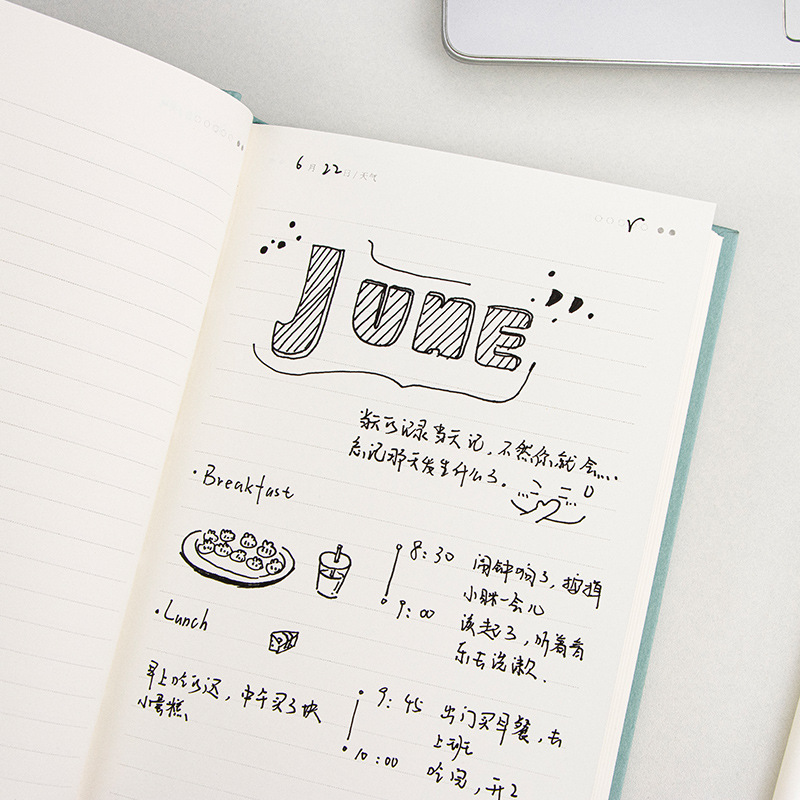 6月22日/天气
JUNE
当天的记录当天记，不然你就会...
忘记那天发生什么了。
· Breakfast
8:30 闹钟响了，按掉
小眯一会儿
9:00 该起了，听着音
乐去洗漱.
· Lunch
早上吃的迟，中午买了块
小蛋糕
9:45 出门买早餐，去
上班
10:00 吃完，开